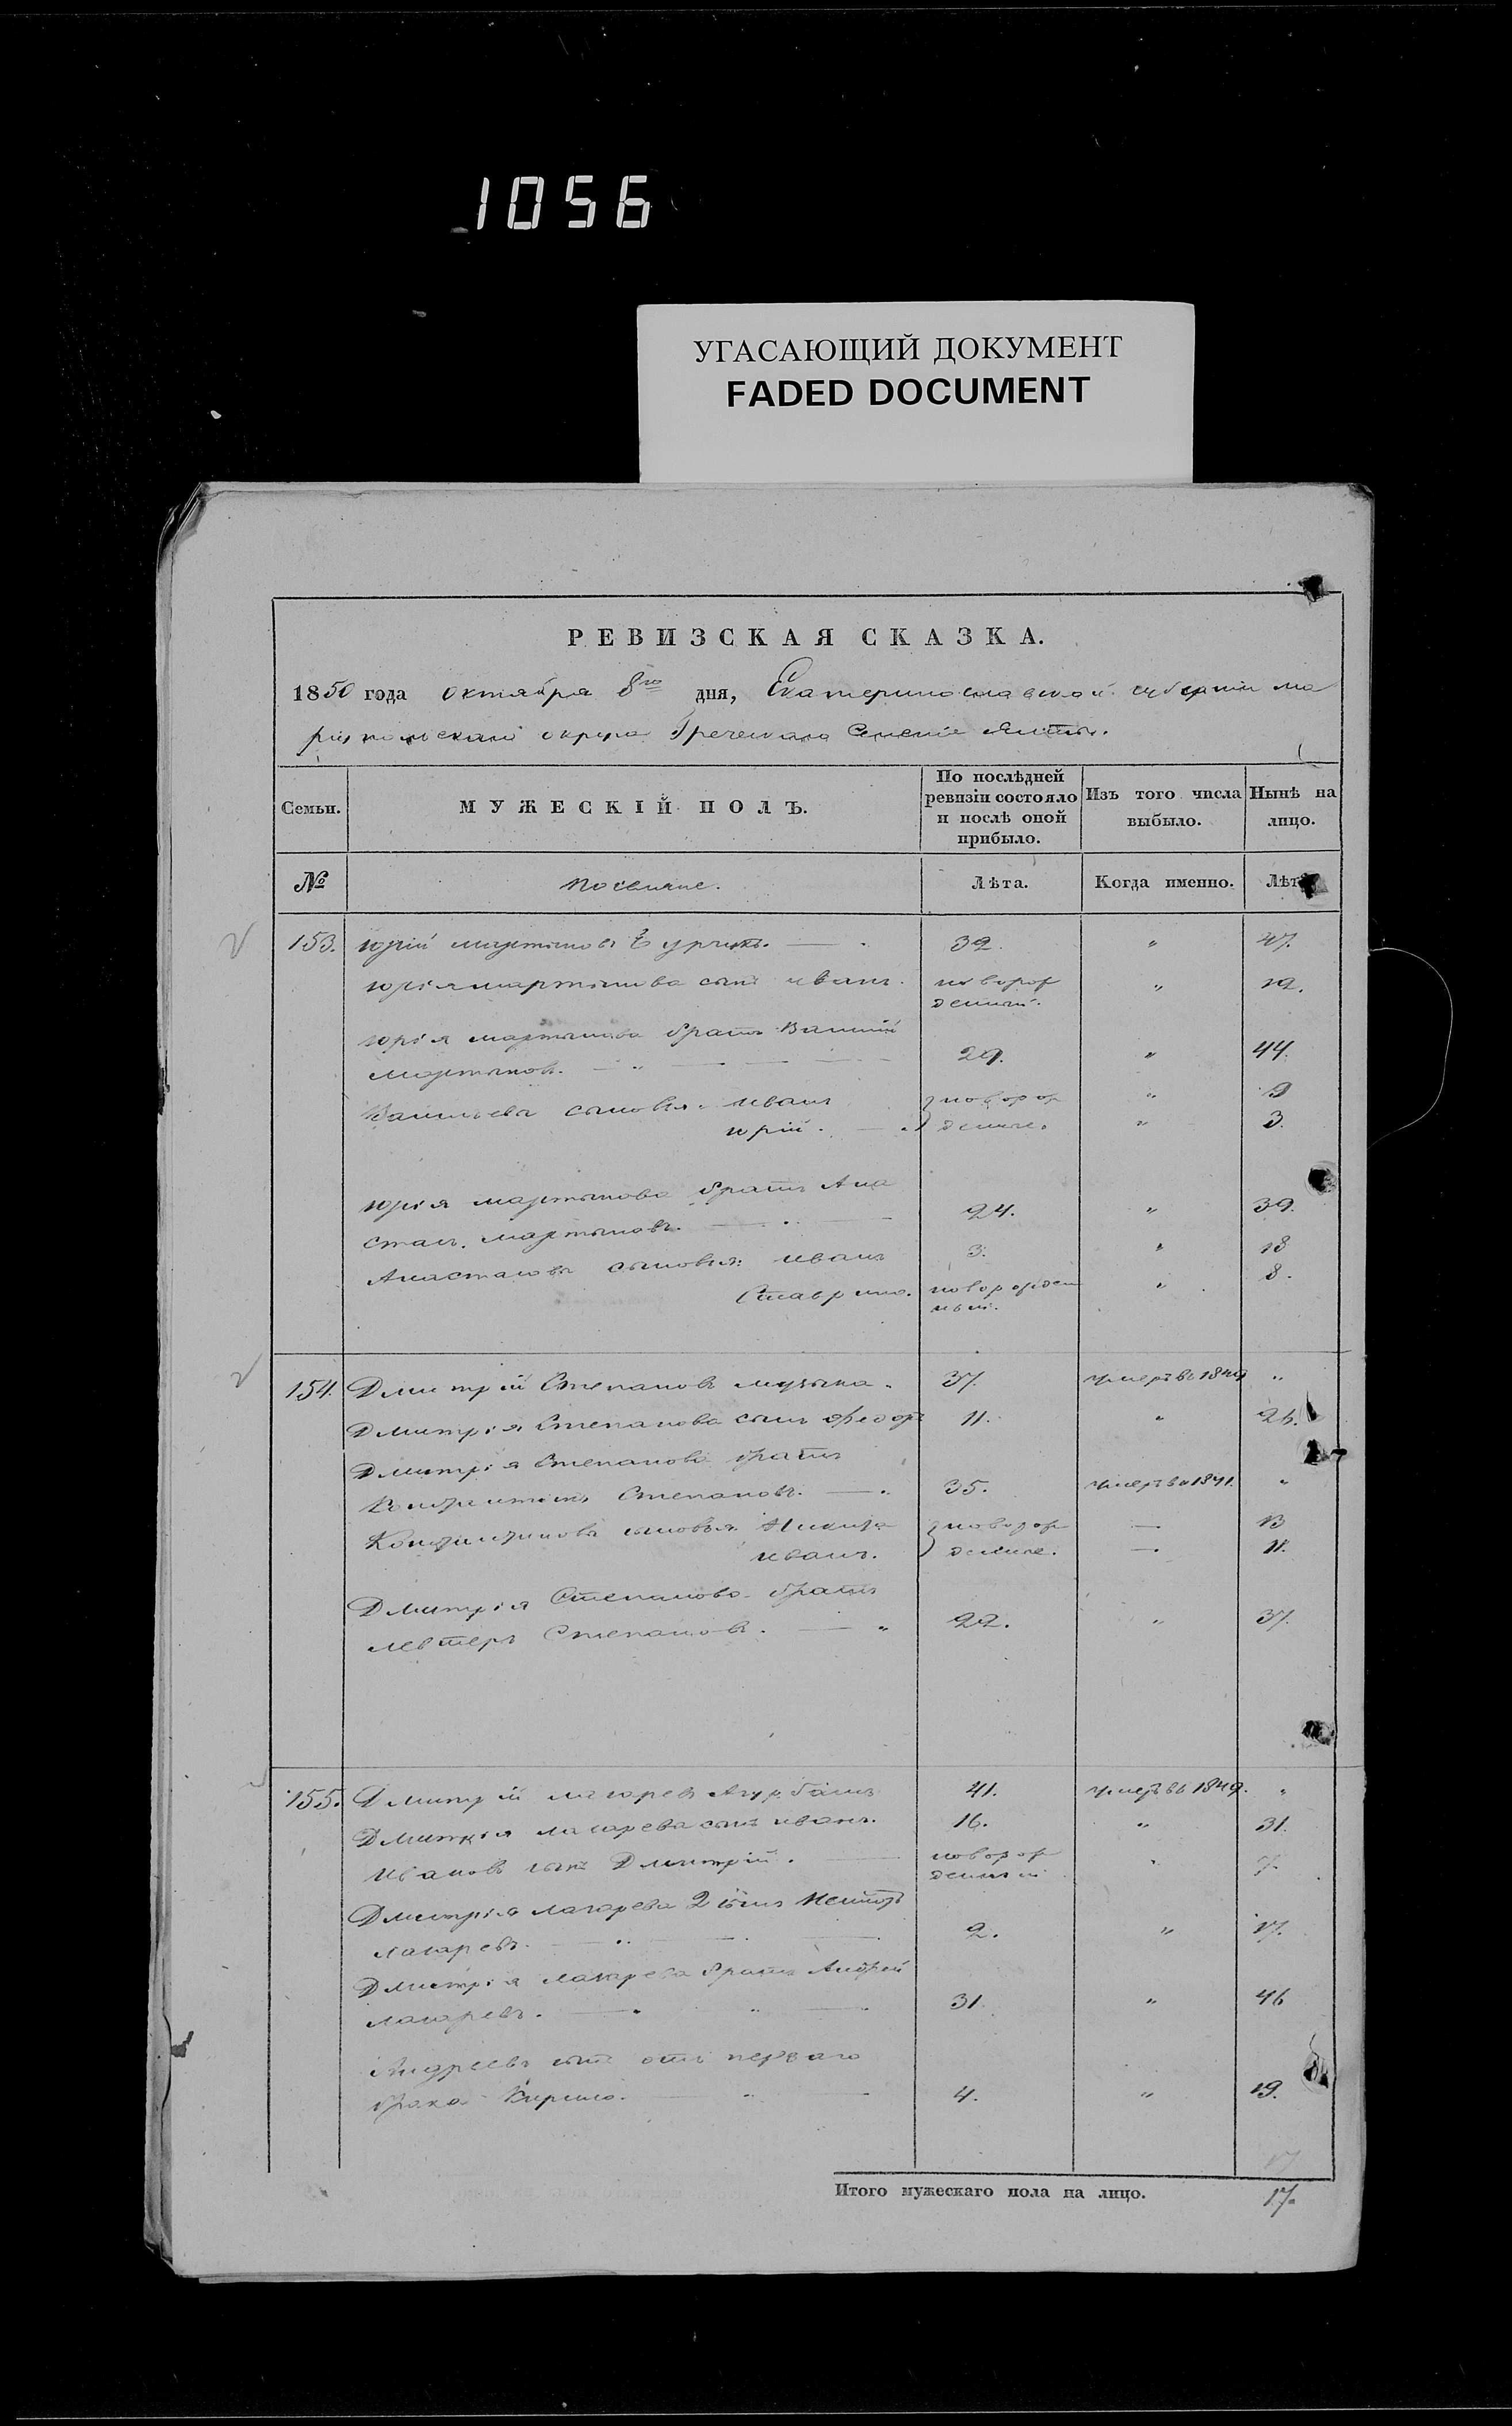 1056
УГАСАЮЩИЙ ДОКУМЕНТ
FADED DOCUMENT
РЕВИЗСКАЯ СКАЗКА.
1850 года октября 8го дня, Екатеринославской губерніи ма
ріупольскаго округа Греческаго Селенія Ялты.
Семьи.
МУЖЕСКІЙ ПОЛЪ.
По послѣдней ревизіи состояло и послѣ оной прибыло.
Изъ того числа выбыло.
Нынѣ на лицо.
№
поселяне.
Лѣта.
Когда именно.
Лѣта
153. Юрій Мартыновъ 32. " 47.
Юрія Мартынова сынъ Иванъ. новорож денный. " 12.
Юрія Мартынова братъ Василій
Мартыновъ. 29. " 44.
Васильева сыновья: Иванъ новорож " 9
Юрій. денные. " 3.
Юрія Мартынова братъ Ана
стасъ Мартыновъ. 24. " 39.
Анастасова сыновья: Иванъ 3. " 18
Ставрино. новорожден ный. " 8.
154. Дмитрій Степановъ Музыка. 37. умеръ въ 1849 "
Дмитрія Степанова сынъ Федоръ 11. " 26.
Дмитрія Степанова братъ
Константинъ Степановъ. 35. умеръ въ 1841. "
Константинова сыновья: Никита новорож — 13
Иванъ. денные. — 11.
Дмитрія Степанова братъ
Левтеръ Степановъ. 22. " 37.
155. Дмитрій Лазаревъ 41. умеръ въ 1849. "
Дмитрія Лазарева сынъ Иванъ. 16. " 31.
Ивановъ сынъ Дмитрій. новорож денный " 7.
Дмитрія Лазарева 2 сынъ
Лазаревъ. 2. " 17.
Дмитрія Лазарева братъ Андрей
Лазаревъ. 31. " 46
Андреевъ сынъ отъ перваго
брака Кирило. 4. " 19.
Итого мужескаго пола на лицо. 17.